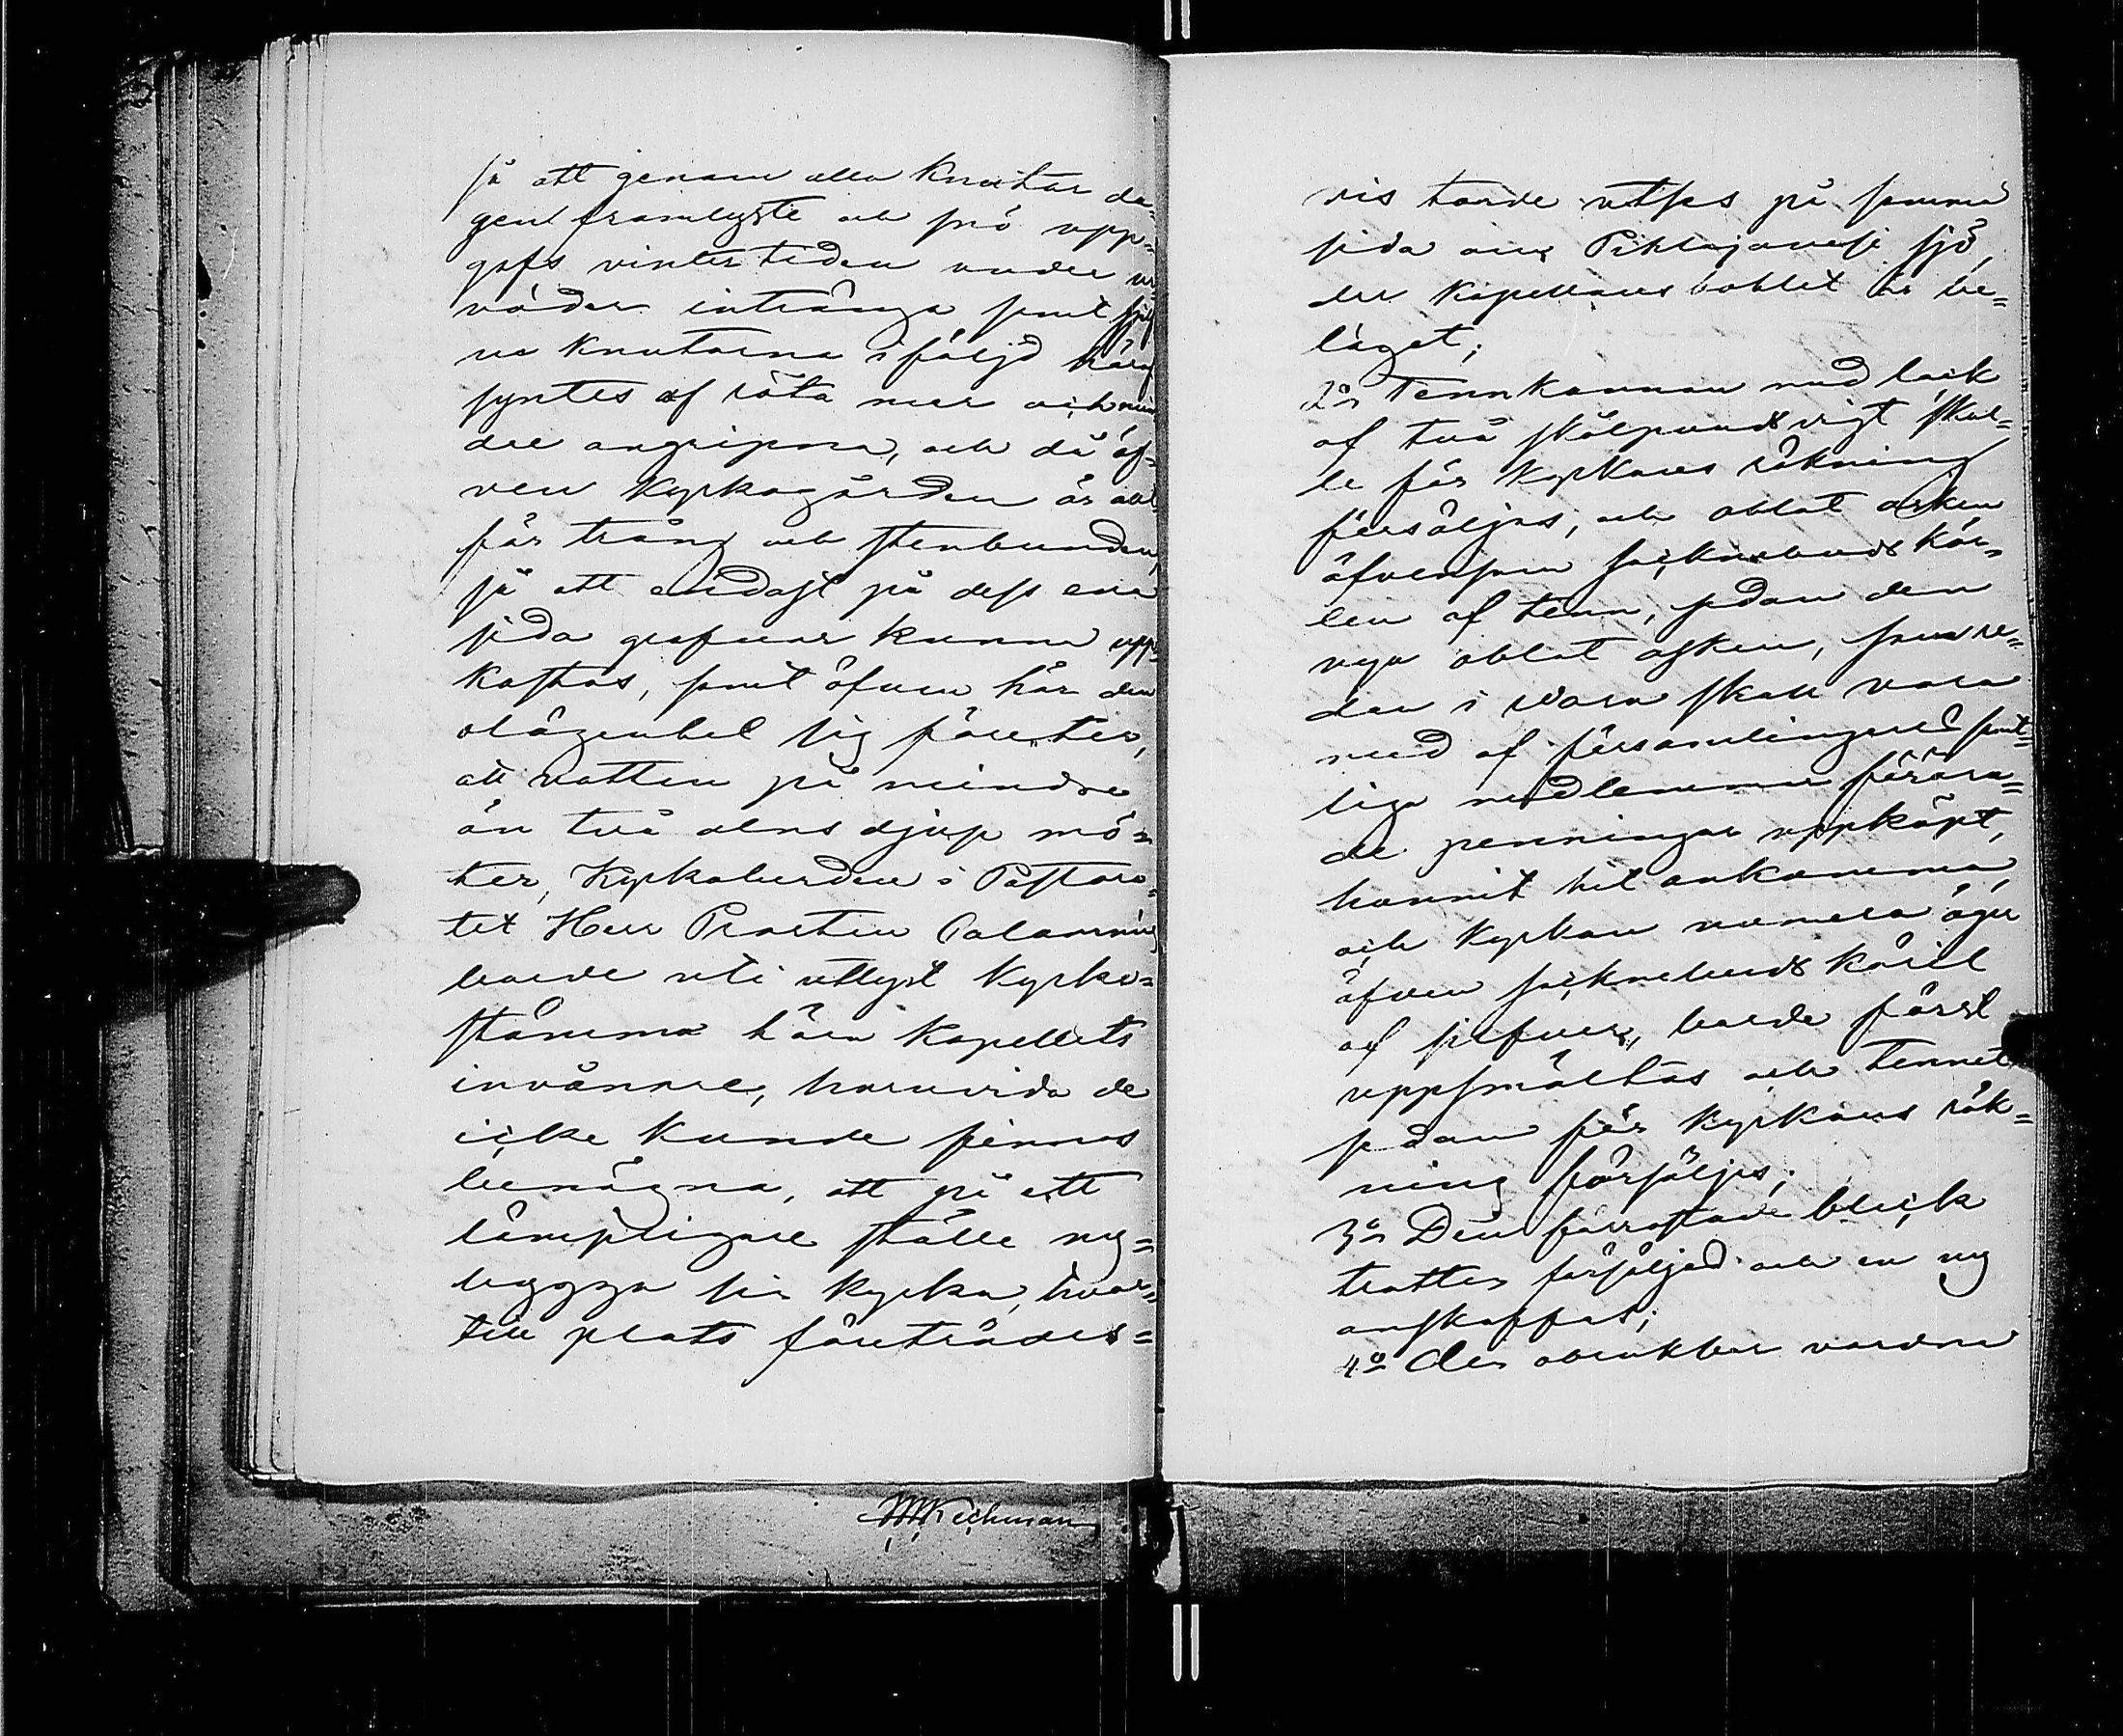 så att genom alla knutar da-
gen framlyste och snö upp-
gafs vintertiden under ur-
väder intränga samt
va knutarna i följd häraf
syntes af röta mer och min
dre angripna, och då äf-
ven Kyrkogården är allt
för trång och stenbunden,
så att endast på dess ena
sida grafvar kunna upp-
kastas, samt äfven här den
olägenhet sig företer,
att vatten på mindre
än två alns djup mö-
ter, Kyrkoherden i Pastora-
tet Herr Prosten Calamnius
borde uti utlyst Kyrko-
stämma höra Kapellets
invånare, huruvida de
icke kunde finnas
benägna, att på ett
lämpligare ställe ny-
bygga sin kyrka, hvar-
till plats företrädes-
vis torde utses på samma
sida om Pihlajavesi sjö,
der Kapellans bohlet är be-
läget;
2:o Tennkannan med lock
af två skålpunds vigt skul-
le för Kyrkans räkning
försäljas, och oblat asken
äfvensom sockenbuds kär-
len af tenn, sedan den
nya oblat asken, som re-
dan i Wasa skall vara
med af församlingens samt-
liga medlemmar förära-
de penningar uppköpt,
hunnit hit ankomma,
och Kyrkan numera äger
äfven sockenbuds käril
af silfver, borde först
uppsmältas och tennet
sedan för Kyrkans räk-
ning försäljas;
3:o Den förrostade bleck
tratten försäljas och en ny
anskaffas;
4:o Den obrukbar vordna
Reichman